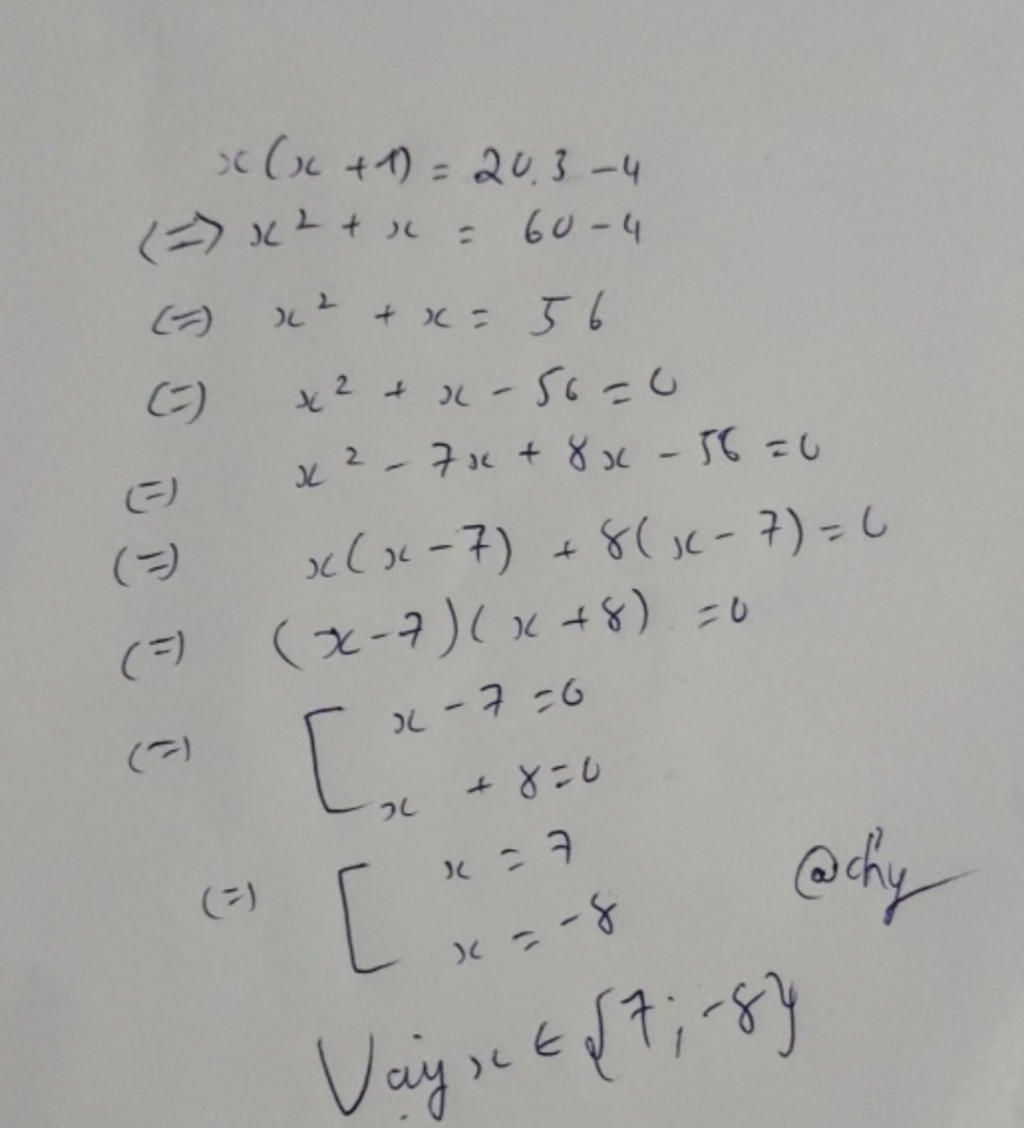 x(x+1) = 20.3 - 4
(=) x² + x = 60 - 4
(=) x² + x = 56
(=) x² + x - 56 = 0
(=) x² - 7x + 8x - 56 = 0
(=) x(x-7) + 8(x-7) = 0
(=) (x-7)(x+8) = 0
(=) [ x - 7 = 0
x + 8 = 0
(=) [ x = 7
x = -8
@chy
Vậy x ∈ {7; -8}